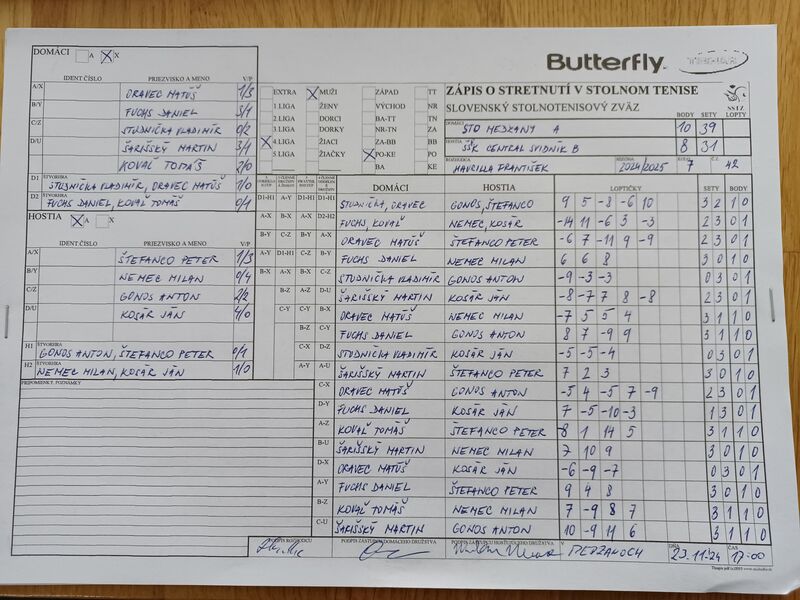 DOMÁCI A X
IDENT ČÍSLO PRIEZVISKO A MENO V/P
A/X ORAVEC MATÚŠ 1/3
B/Y FUCHS DANIEL 3/1
C/Z STUDNIČKA VLADIMÍR 0/2
D/U ŠARIŠSKÝ MARTIN 3/1
KOVAĽ TOMÁŠ 2/0
D1 ŠTVORHRA STUDNIČKA VLADIMÍR, ORAVEC MATÚŠ 1/0
D2 ŠTVORHRA FUCHS DANIEL, KOVAĽ TOMÁŠ 0/1
HOSTIA A X
IDENT ČÍSLO PRIEZVISKO A MENO V/P
A/X ŠTEFANCO PETER 1/3
B/Y NEMEC MILAN 0/4
C/Z GONOS ANTON 2/2
D/U KOSÁR JÁN 4/0
H1 ŠTVORHRA GONOS ANTON, ŠTEFANCO PETER 0/1
H2 ŠTVORHRA NEMEC MILAN, KOSÁR JÁN 1/0
PRIPOMIENKY, POZNÁMKY
Butterfly
EXTRA MUŽI ZÁPAD TT
1.LIGA ŽENY VÝCHOD NR
2.LIGA DORCI BA-TT TN
3.LIGA DORKY NR-TN ZA
4.LIGA ŽIACI ZA-BB BB
5.LIGA ŽIAČKY PO-KE PO
BA KE
ZÁPIS O STRETNUTÍ V STOLNOM TENISE
SLOVENSKÝ STOLNOTENISOVÝ ZVÄZ
SSTZ
BODY SETY LOPTY
DOMÁCI STO MEDZANY A 10 39
HOSTIA ŠŠK CENTRAL SVIDNÍK B 8 31
ROZHODCA HAVRILLA FRANTIŠEK SEZÓNA 2024/2025 KOLO 7 Č.Z. 42
DOMÁCI HOSTIA LOPTIČKY SETY BODY
D1-H1 A-Y D1-H1 D1-H1 STUDNIČKA, ORAVEC GONOS, ŠTEFANCO 9 5 -8 -6 10 3 2 1 0
A-X B-X A-X D2-H2 FUCHS, KOVAĽ NEMEC, KOSÁR -14 11 -6 3 -3 2 3 0 1
B-Y C-Z B-Y A-X ORAVEC MATÚŠ ŠTEFANCO PETER -6 7 -11 9 -9 2 3 0 1
A-Y D1-H1 C-Z B-Y FUCHS DANIEL NEMEC MILAN 6 6 8 3 0 1 0
B-X A-X B-X C-Z STUDNIČKA VLADIMÍR GONOS ANTON -9 -3 -3 0 3 0 1
B-Z A-Z D-U ŠARIŠSKÝ MARTIN KOSÁR JÁN -8 -7 7 8 -8 2 3 0 1
C-Y C-Y B-X ORAVEC MATÚŠ NEMEC MILAN -7 5 5 4 3 1 1 0
B-Z C-Y FUCHS DANIEL GONOS ANTON 8 7 -9 9 3 1 1 0
C-X D-Z STUDNIČKA VLADIMÍR KOSÁR JÁN -5 -5 -4 0 3 0 1
A-Y A-U ŠARIŠSKÝ MARTIN ŠTEFANCO PETER 7 2 3 3 0 1 0
C-X ORAVEC MATÚŠ GONOS ANTON -5 4 -5 7 -9 2 3 0 1
D-Y FUCHS DANIEL KOSÁR JÁN 7 -5 -10 -3 1 3 0 1
A-Z KOVAĽ TOMÁŠ ŠTEFANCO PETER -8 1 14 5 3 1 1 0
B-U ŠARIŠSKÝ MARTIN NEMEC MILAN 7 10 9 3 0 1 0
D-X ORAVEC MATÚŠ KOSÁR JÁN -6 -9 -7 0 3 0 1
A-Y FUCHS DANIEL ŠTEFANCO PETER 9 4 8 3 0 1 0
B-Z KOVAĽ TOMÁŠ NEMEC MILAN 7 -9 8 7 3 1 1 0
C-U ŠARIŠSKÝ MARTIN GONOS ANTON 10 -9 11 6 3 1 1 0
PODPIS ROZHODCU PODPIS ZÁSTUPCU DOMÁCEHO DRUŽSTVA PODPIS ZÁSTUPCU HOSŤUJÚCEHO DRUŽSTVA V MEDZANOCH DŇA 23.11.24 ČAS 17:00